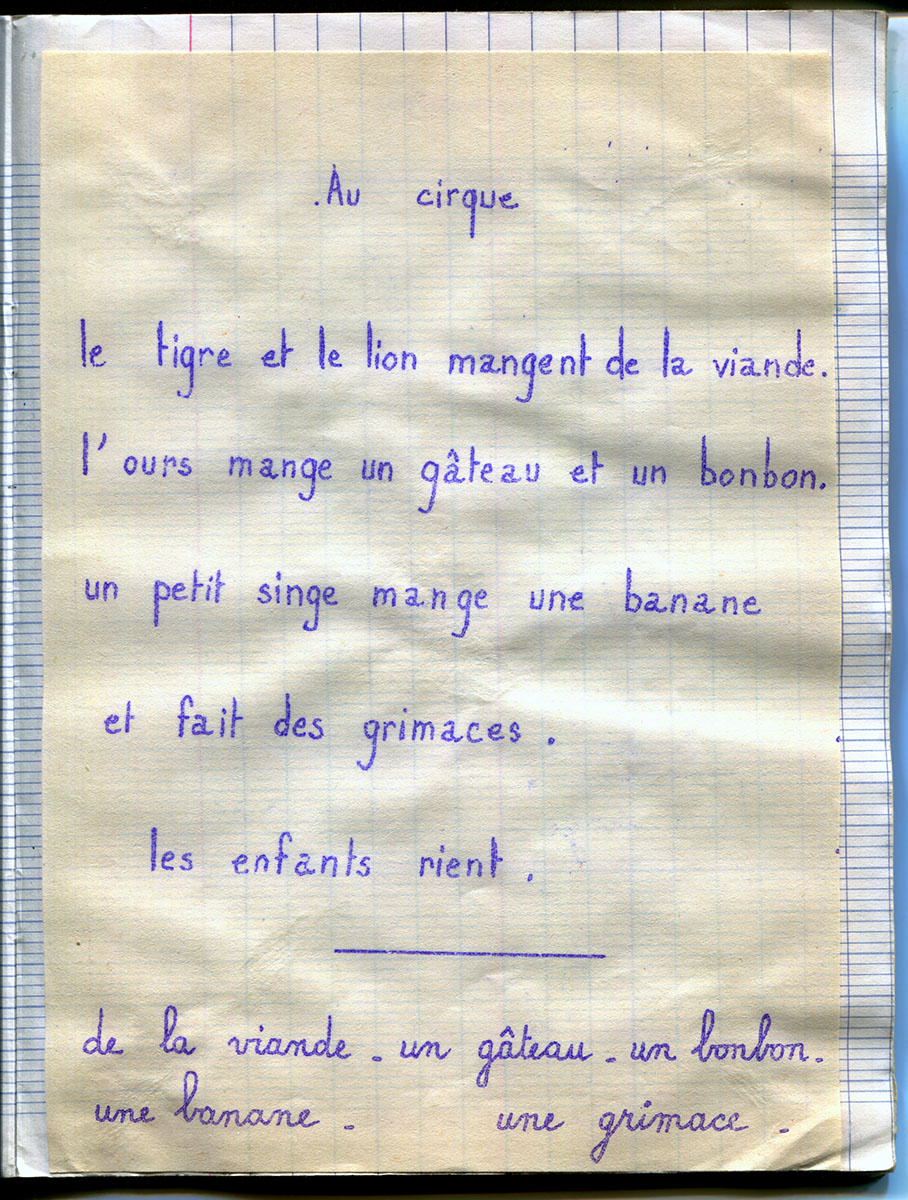 .Au cirque
le tigre et le lion mangent de la viande.
l'ours mange un gâteau et un bonbon.
un petit singe mange une banane
et fait des grimaces.
les enfants rient.
de la viande - un gâteau - un bonbon.
une banane - une grimace -